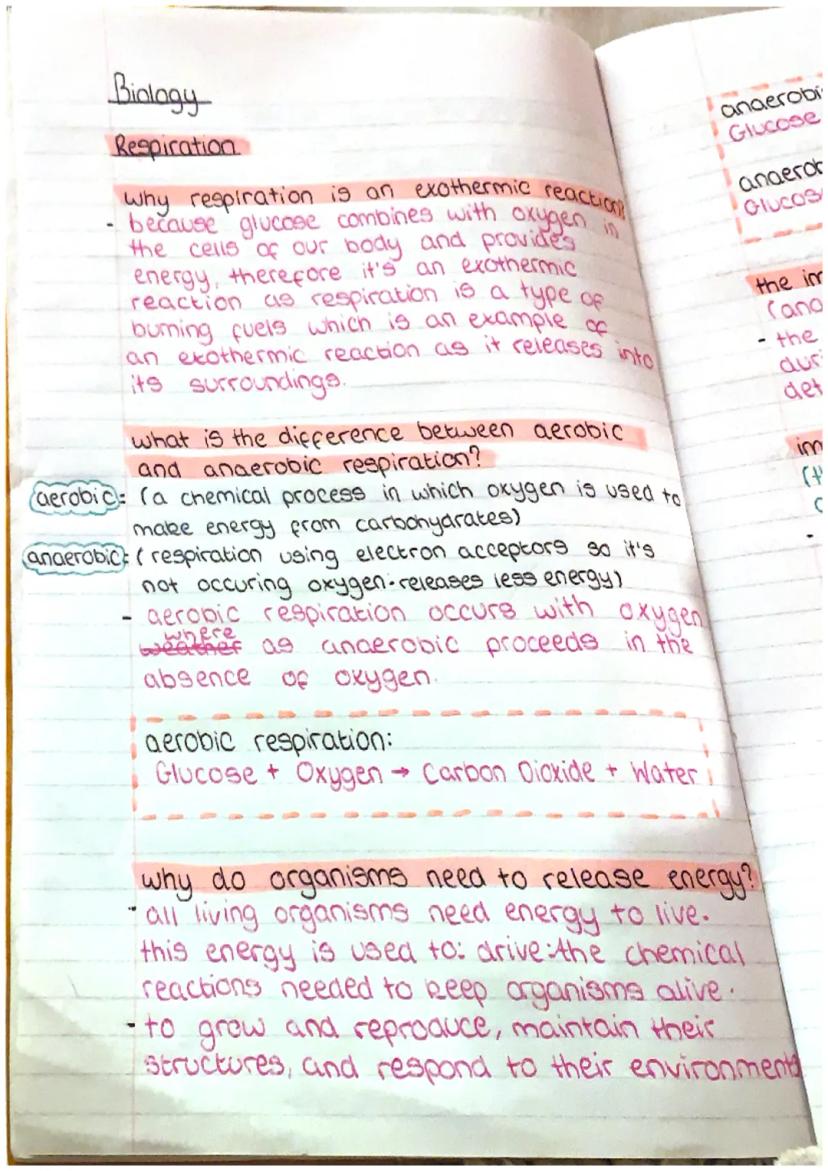 Biology
Respiration
why respiration is an exothermic reaction?
- because glucose combines with oxygen in
the cells of our body and provides
energy, therefore it's an exothermic
reaction as respiration is a type of
burning fuels which is an example of
an exothermic reaction as it releases into
its surroundings.
what is the difference between aerobic
and anaerobic respiration?
aerobic: (a chemical process in which oxygen is used to
make energy from carbohydrates)
anaerobic: (respiration using electron acceptors so it's
not occuring oxygen.releases less energy)
- aerobic respiration occurs with oxygen
where
weather as anaerobic proceeds in the
absence of oxygen.
aerobic respiration:
Glucose + Oxygen → Carbon Dioxide + Water
why do organisms need to release energy?
- all living organisms need energy to live.
this energy is used to: drive:the chemical
reactions needed to keep organisms alive.
- to grow and reproduce, maintain their
structures, and respond to their environments
anaerobi
Glucose
anaerob
Glucos
the im
(ana
- the
duri
det
im
(t
-